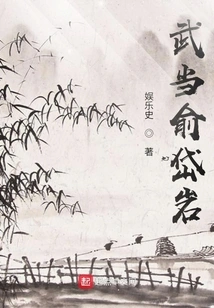 武当俞岱岩
娱乐史◎著